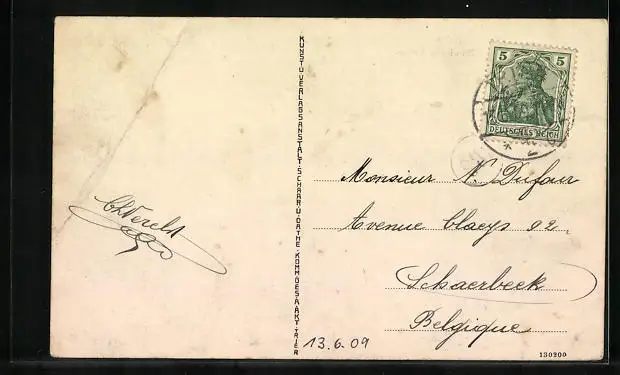 5 5
DEUTSCHES REICH
KUNST U. VERLAGSANSTALT · SCHAAR U. DATHE · KOMM. GES. A. AKT. TRIER
Monsieur N. Dufour
Avenue Claeys 92.
Schaerbeek
Belgique
13.6.09
130200